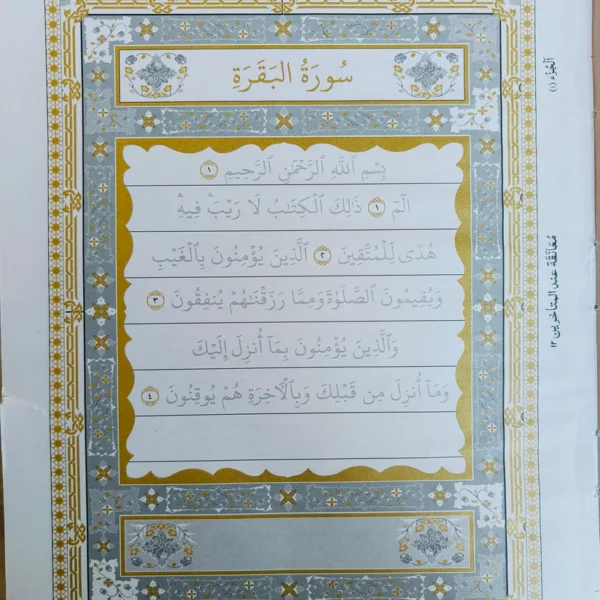 سُورَةُ البَقَرَةِ
بِسْمِ ٱللَّهِ ٱلرَّحْمَٰنِ ٱلرَّحِيمِ ١
الٓمٓ ١ ذَٰلِكَ ٱلْكِتَٰبُ لَا رَيْبَ ۛ فِيهِ ۛ
هُدًى لِّلْمُتَّقِينَ ٢ ٱلَّذِينَ يُؤْمِنُونَ بِٱلْغَيْبِ
وَيُقِيمُونَ ٱلصَّلَوٰةَ وَمِمَّا رَزَقْنَٰهُمْ يُنفِقُونَ ٣
وَٱلَّذِينَ يُؤْمِنُونَ بِمَآ أُنزِلَ إِلَيْكَ
وَمَآ أُنزِلَ مِن قَبْلِكَ وَبِٱلْءَاخِرَةِ هُمْ يُوقِنُونَ ٤
ٱلْجُزْء (١)
مُعَانَقَة عند المتاخرين ١٢